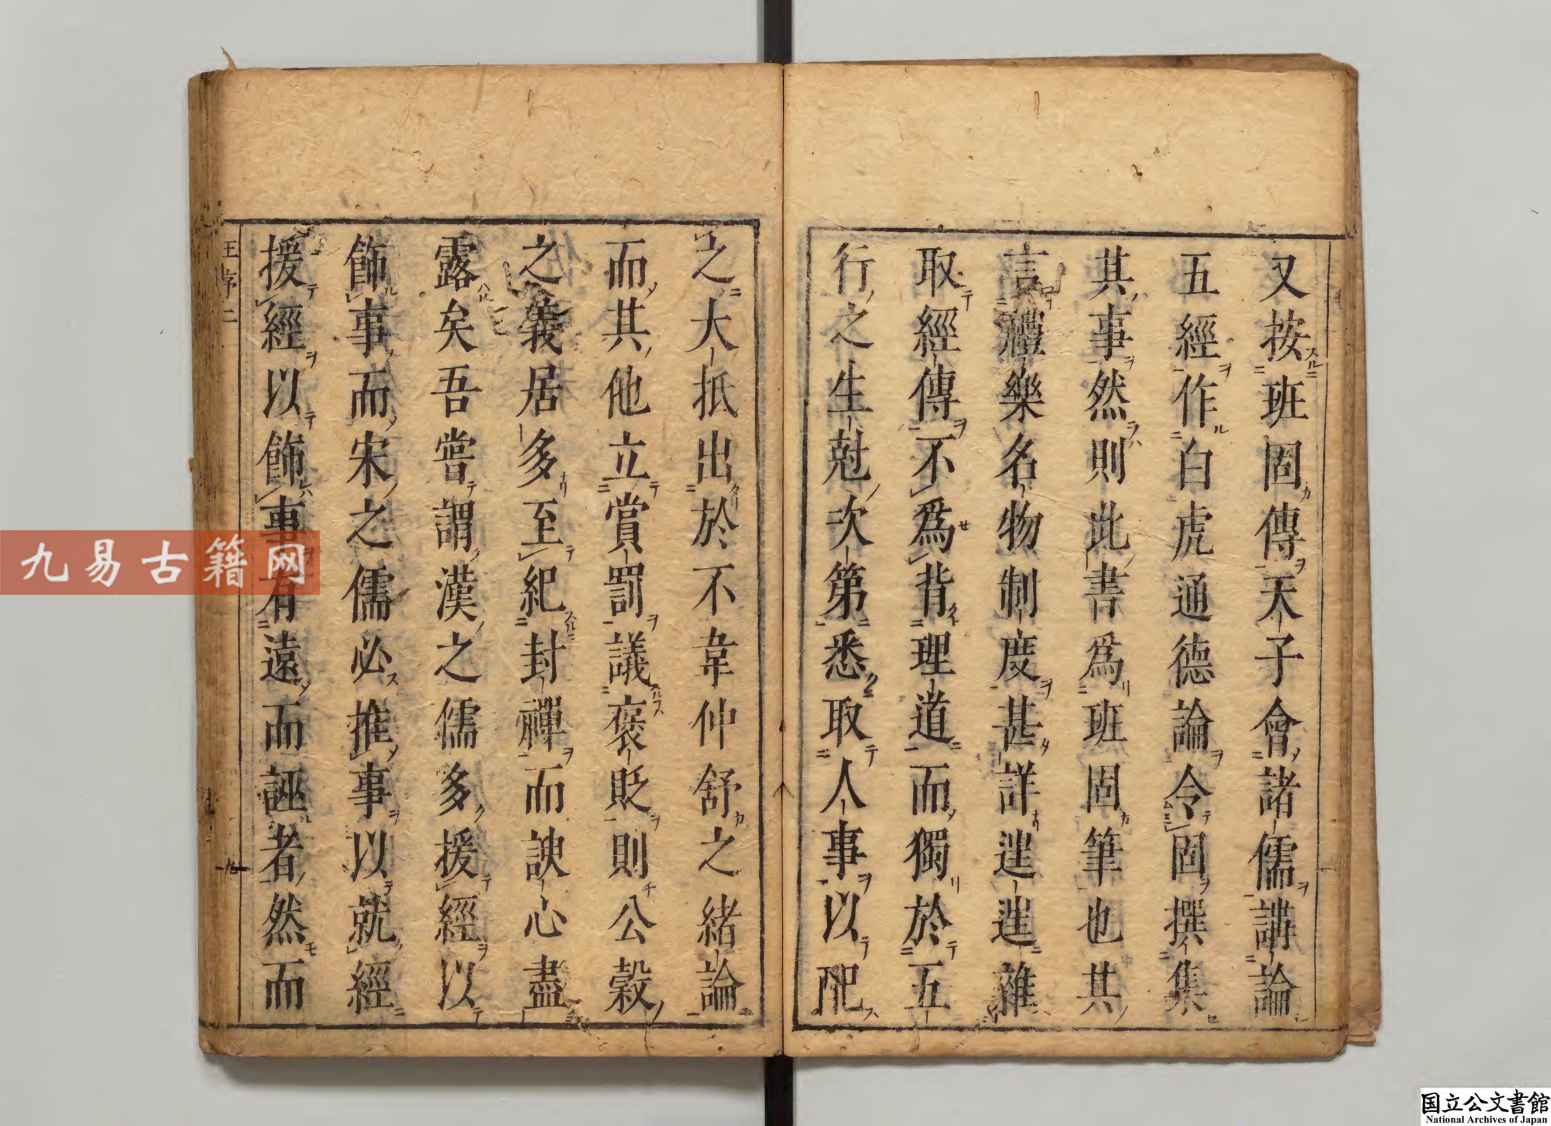 又按班固傳天子會諸儒講論
五經作白虎通德論令固撰集
其事然則此書爲班固筆也其
言禮樂名物制度甚詳遑遑雜
取經傳不爲背理道而獨於五
行之生尅次第悉取人事以配
之大抵出於不韋仲舒之緒論
而其他立賞罰議褒貶則公穀
之義居多至紀封禪而諛心盡
露矣吾嘗謂漢之儒多援經以
飾事而宋之儒必推事以就經
援經以飾事有遠而誣者然而
九易古籍网
国立公文書館
National Archives of Japan